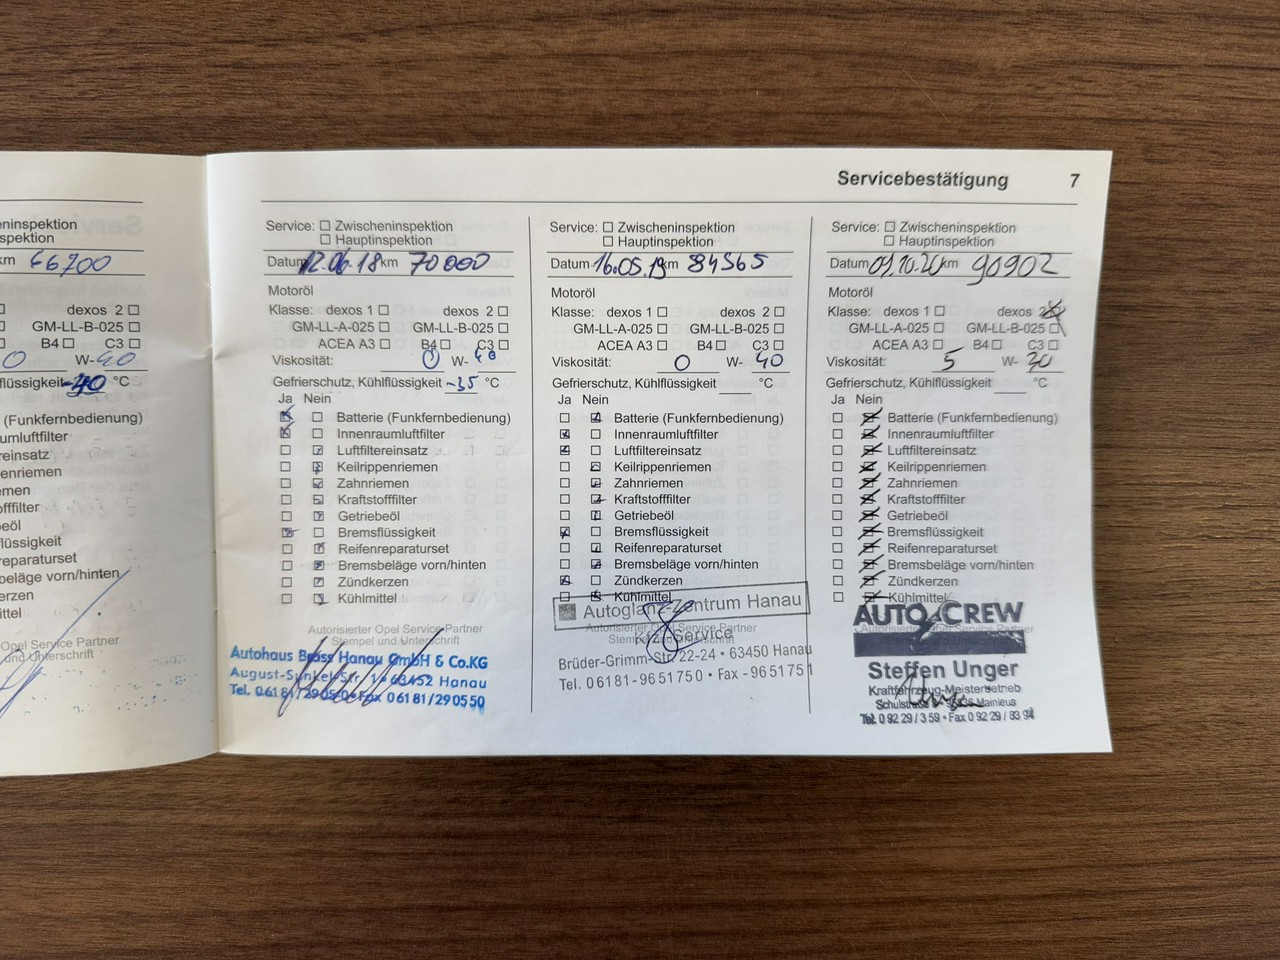 eninspektion
spektion
km 66700
dexos 2
GM-LL-B-025
B4 C3
0 W-40
flüssigkeit -40 °C
(Funkfernbedienung)
umluftfilter
ereinsatz
enriemen
emen
offfilter
eöl
lüssigkeit
reparaturset
beläge vorn/hinten
erzen
ittel
Opel Service Partner
und Unterschrift
Servicebestätigung 7
Service: Zwischeninspektion
Hauptinspektion
Datum 12.06.18 km 70000
Motoröl
Klasse: dexos 1 dexos 2
GM-LL-A-025 GM-LL-B-025
ACEA A3 B4 C3
Viskosität: 0 W-40
Gefrierschutz, Kühlflüssigkeit -35 °C
Ja Nein
Batterie (Funkfernbedienung)
Innenraumluftfilter
Luftfiltereinsatz
Keilrippenriemen
Zahnriemen
Kraftstofffilter
Getriebeöl
Bremsflüssigkeit
Reifenreparaturset
Bremsbeläge vorn/hinten
Zündkerzen
Kühlmittel
Autorisierter Opel Service Partner
Stempel und Unterschrift
Autohaus Brass Hanau GmbH & Co.KG
August-Sunkel-Str. 1 • 63452 Hanau
Tel. 06181/29050 • Fax 06181/290550
Service: Zwischeninspektion
Hauptinspektion
Datum 16.05.19 km 84565
Motoröl
Klasse: dexos 1 dexos 2
GM-LL-A-025 GM-LL-B-025
ACEA A3 B4 C3
Viskosität: 0 W-40
Gefrierschutz, Kühlflüssigkeit °C
Ja Nein
Batterie (Funkfernbedienung)
Innenraumluftfilter
Luftfiltereinsatz
Keilrippenriemen
Zahnriemen
Kraftstofffilter
Getriebeöl
Bremsflüssigkeit
Reifenreparaturset
Bremsbeläge vorn/hinten
Zündkerzen
Kühlmittel
Autoglanz-Zentrum Hanau
Autorisierter Opel Service Partner
Stempel und Unterschrift
Kfz-Service
Brüder-Grimm-Str. 22-24 • 63450 Hanau
Tel. 06181-9651750 • Fax -9651751
Service: Zwischeninspektion
Hauptinspektion
Datum 01.10.20 km 90902
Motoröl
Klasse: dexos 1 dexos 2
GM-LL-A-025 GM-LL-B-025
ACEA A3 B4 C3
Viskosität: 5 W-30
Gefrierschutz, Kühlflüssigkeit °C
Ja Nein
Batterie (Funkfernbedienung)
Innenraumluftfilter
Luftfiltereinsatz
Keilrippenriemen
Zahnriemen
Kraftstofffilter
Getriebeöl
Bremsflüssigkeit
Reifenreparaturset
Bremsbeläge vorn/hinten
Zündkerzen
Kühlmittel
AUTO CREW
Steffen Unger
Kraftfahrzeug-Meisterbetrieb
Mainleus
Tel. 0 92 29 / 3 59 • Fax 0 92 29 / 83 94